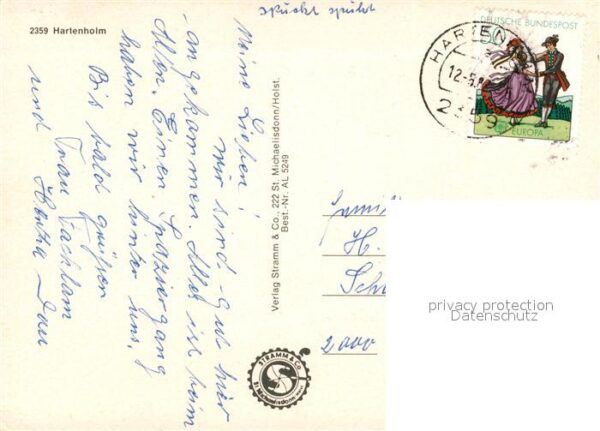 2359 Hartenholm
spuckt spuckt
Meine Lieben!
wir sind gut hier
angekommen. Alles ist beim
Alten. Einen Spaziergang
haben wir hinter uns.
Bis bald grüßen
und Frau
Hertha
Verlag Stramm & Co., 222 St. Michaelisdonn/Holst.
Best.-Nr. AL 5249
STRAMM & Co.
St. Michaelisdonn
DEUTSCHE BUNDESPOST
EUROPA
HARTEN
12-5.8
2359
Famili
H.
Sch
2000
privacy protection
Datenschutz